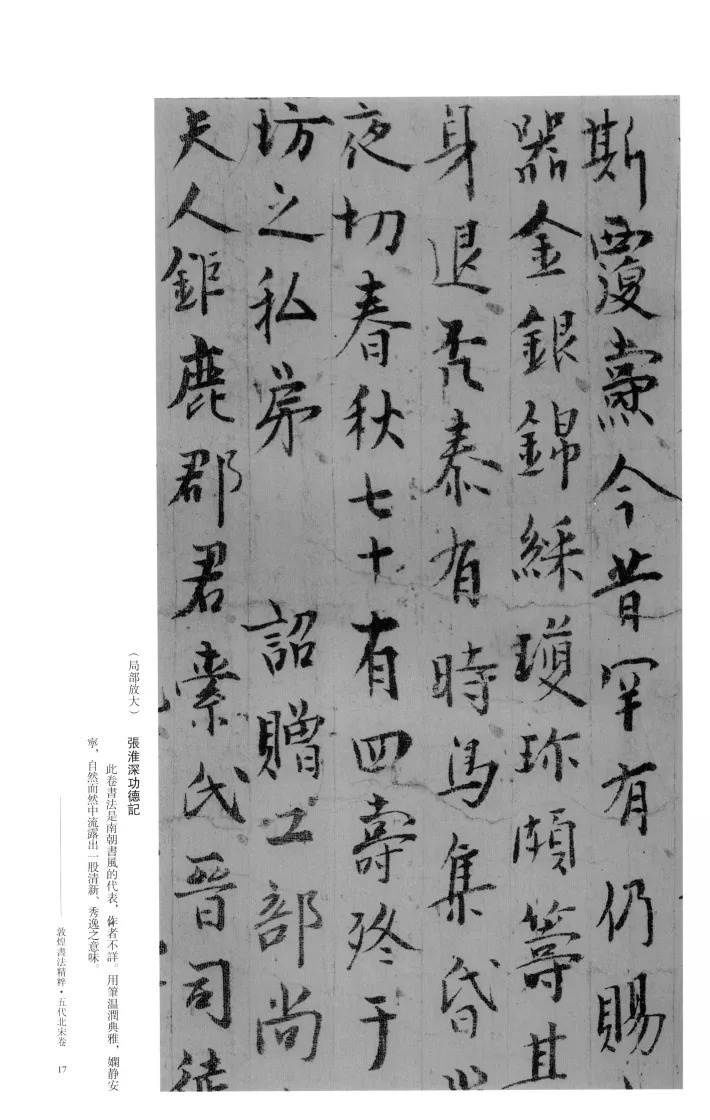 斯覆黨今昔罕有仍賜
器金銀錦綵瓊珍頗籌其
身退否泰有時馬集昏
夜切春秋七十有四壽終于
坊之私苐 詔贈工部尚
夫人鉅鹿郡君索氏晉司徒
（局部放大）
張淮深功德記
此卷書法是南朝書風的代表，作者不詳。用筆温潤典雅，嫻静安
寧，自然而然中流露出一股清新、秀逸之意味。
敦煌書法精粹・五代北宋卷
17